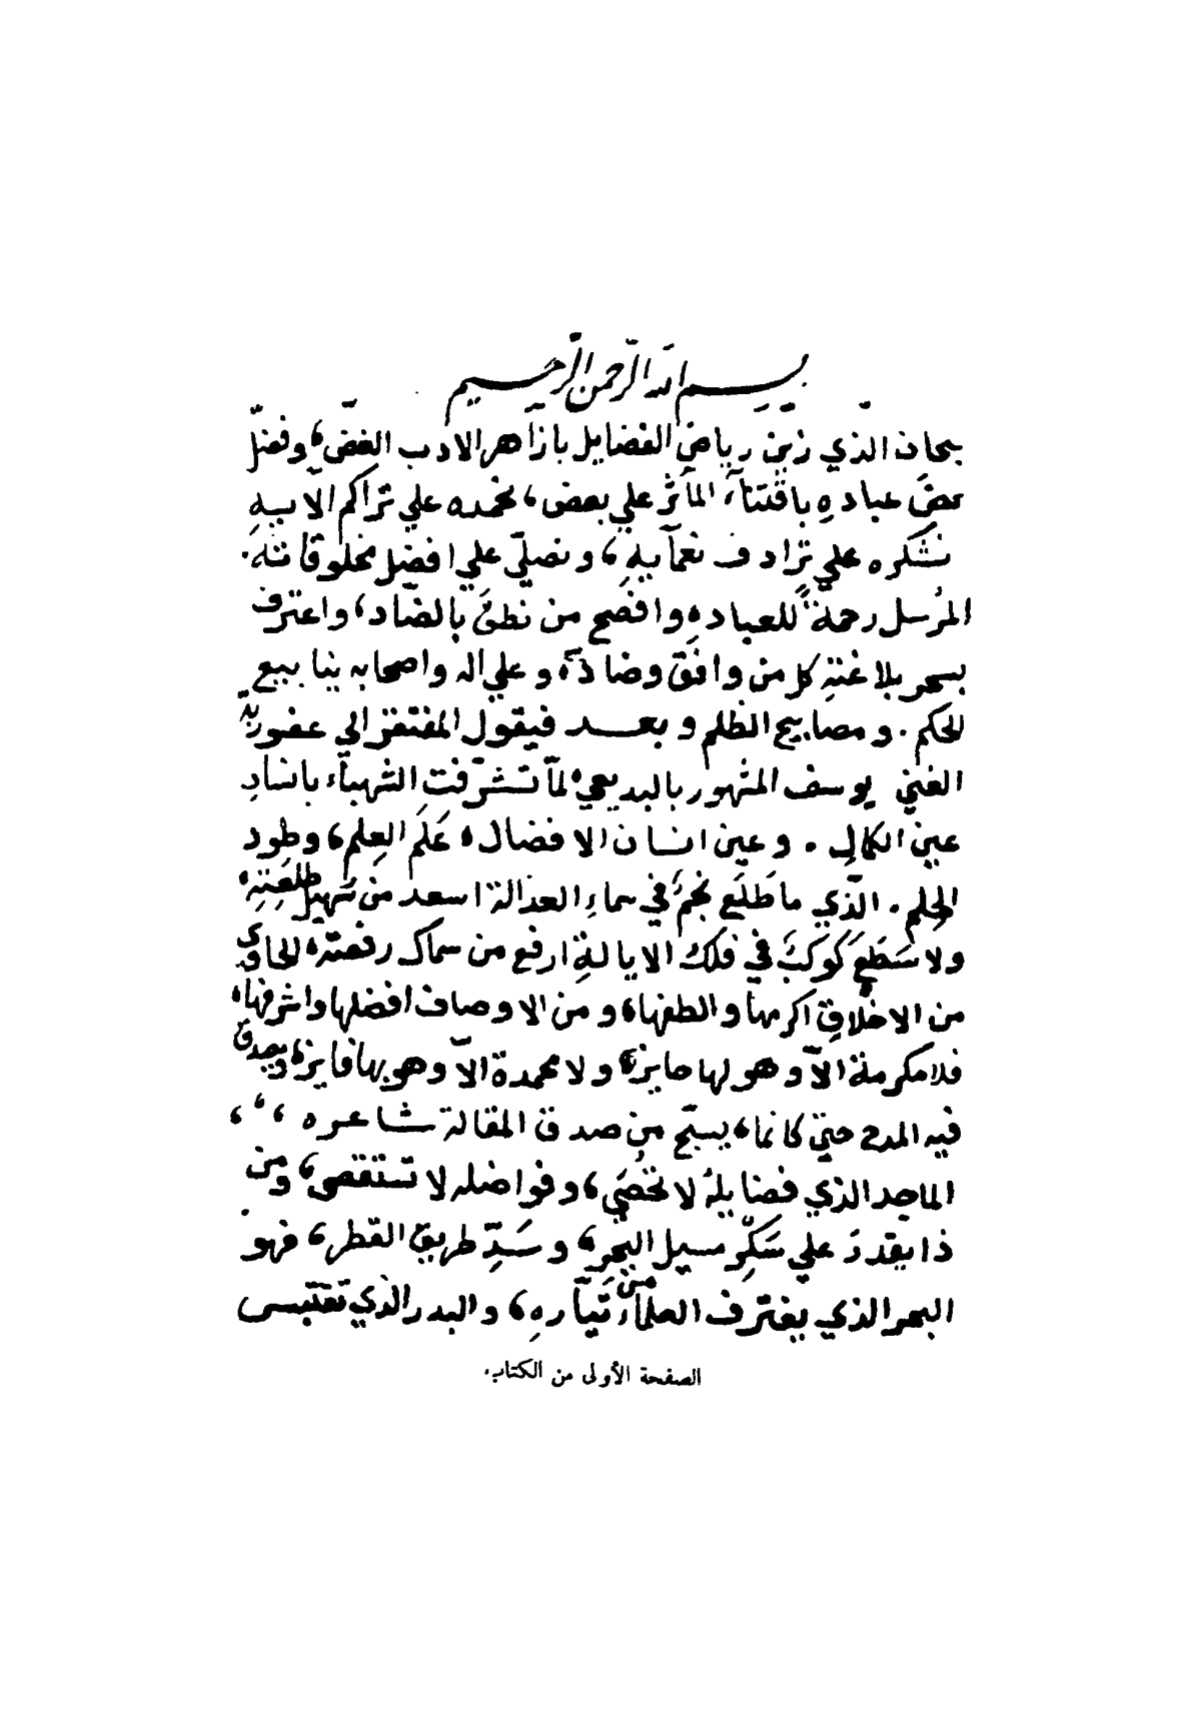 بسم الله الرحمن الرحيم
سبحان الذي زين رياض الفضايل بازاهر الادب الغض، وفضل
بعض عباده باقتناء المآثر علي بعض، نحمده علي تراكم الآييه
ونشكره علي ترادف نعمآيه، ونصلي علي افضل مخلوقاته.
المرسل رحمة للعباده وافصح من نطق بالضاد، واعترف
بسحر بلاغته كل من وافق وضادّه وعلي آله واصحابه ينابيع
الحكم. ومصابيح الظلم وبعد فيقول المفتقر الي عفو ربه
الغني يوسف المشهور بالبديعي، لمّا تشرّفت الشهبآء بانسان
عين الكمال. وعين انسان الافضال، عَلَم العِلم، وطود
الحلم. الذي ما طَلَعَ نجمٌ في سماء العدالة اسعد من سهيل طلعته،
ولا سَطَعَ كوكبٌ في فلك الايالةِ ارفع من سماك رفعته، الحاوي
من الاخلاقِ اكرمها والطفها، ومن الاوصاف افضلها واشرفها،
فلا مكرمة الاّ وهو لها حايز، ولا محمدة الاّ وهو بها فايز، ويصدق
فيه المدح حتي كانما، يسبّح من صدق المقالة شاعره ، ، ،
الماجد الذي فضايلهُ لا تحُصَي، وفواضله لا تستقصى، ومن
ذا يقدر علي سَكْر مسيل البحر، وسَدِّ طريق القطر، فهو
البحر الذي يغترف العلمآء من تيّاره، والبدر الذي تقتبس
الصفحة الأولى من الكتاب.